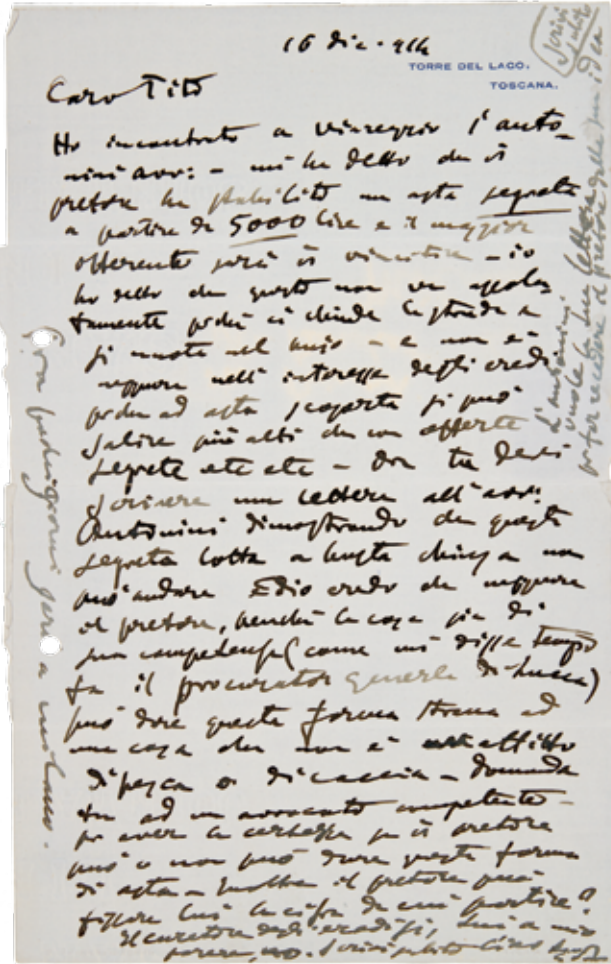 16 dic. 914
TORRE DEL LAGO.
TOSCANA.
Caro Tito
Ho incontrato a Viareggio l'Anto-
nini avv: - mi ha detto che il
pretore ha stabilito un asta segreta
a partire da 5000 lire e il maggior
offerente sarà il vincitore - io
ho detto che questo non va assolu-
tamente perchè ci chiude la strada a
si - e non è
neppure nell'interesse degli eredi
perchè ad asta scoperta si può
salire più alti che con offerte
segrete etc etc - Ora tu devi
scrivere una lettera all'avv:
Antonini dimostrando che questa
segreta lotta a busta chiusa non
può andare Ed io credo che neppure
il pretore, benchè la cosa sia di
sua competenza (come mi disse tempo
fa il procurator generale di Lucca)
può dare questa forma strana ad
una cosa che non è affitto
di pesca o di caccia - domanda
tu ad un avvocato competente -
per aver la certezza se il pretore
può o non può dare questa forma
di asta - Inoltre il pretore può
fissare lui la cifra da cui partire?
Il curatore degli eredi si, lui a mio
parere, no. Scrivi subito
Scrivi
subito
L'Antonini
vuole la sua lettera
per far recedere il pretore dalla sua idea
Fra pochi giorni sarò a Milano.